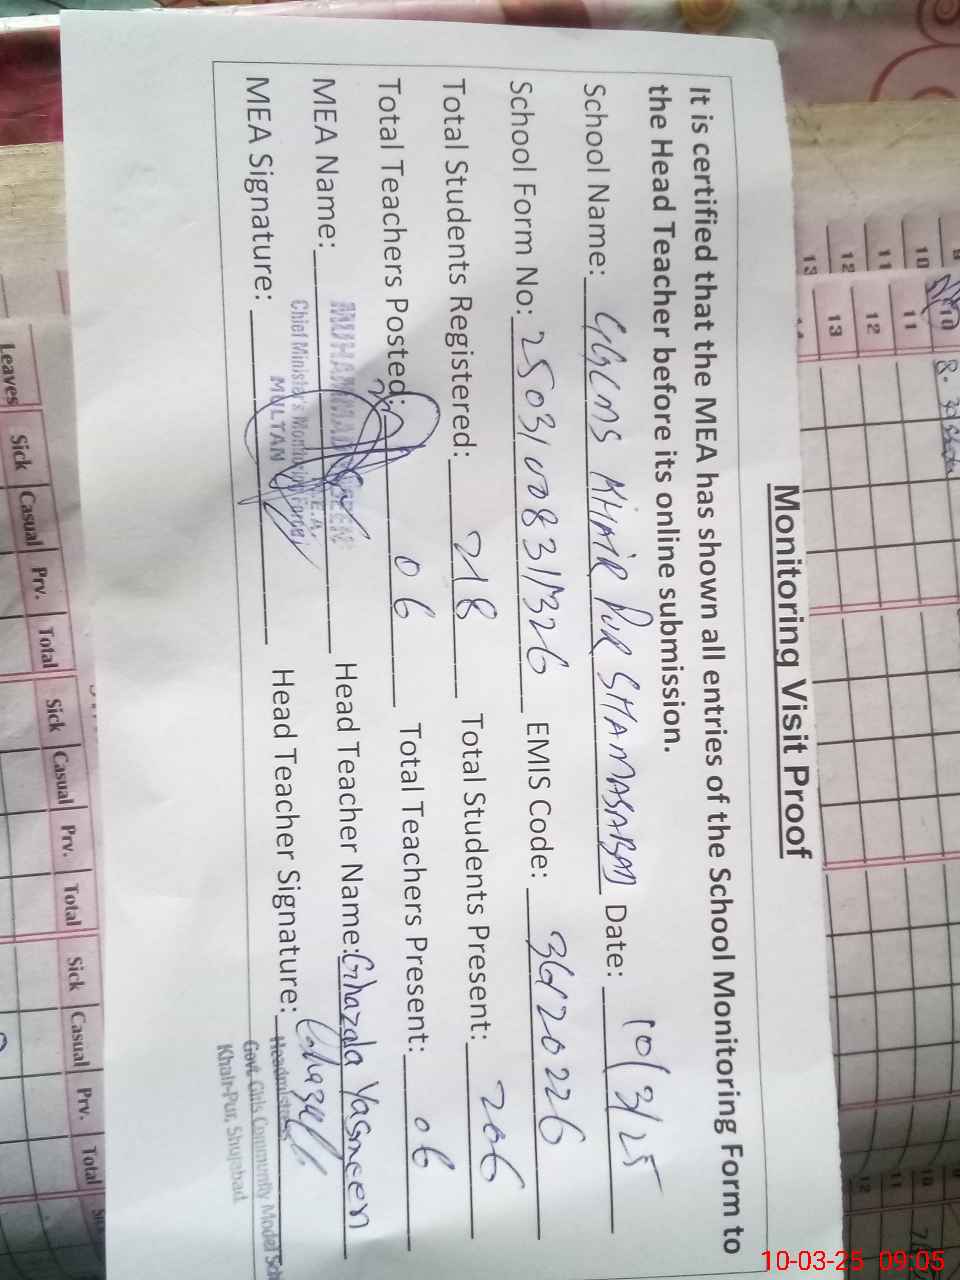 Monitoring Visit Proof
It is certified that the MEA has shown all entries of the School Monitoring Form to
the Head Teacher before its online submission.
School Name: GGCMS KHAIR PUR SHAMASABAD Date: 10/3/25
School Form No: EMIS Code:
Total Students Registered: 218 Total Students Present: 206
Total Teachers Posted: 06 Total Teachers Present: 06
MEA Name: MUHAMMAD Head Teacher Name: Ghazala Yasmeen
Chief Minister's Monitoring Force
MULTAN
MEA Signature: Head Teacher Signature: Ghazala
Headmistress
Govt. Girls Community Model Sch
Khair-Pur, Shujabad
10
11
12
13
10
11
12
13
Leaves Sick Casual Prv. Total Sick Casual Prv. Total Sick Casual Prv. Total
10
11
12
10-03-25 09:05